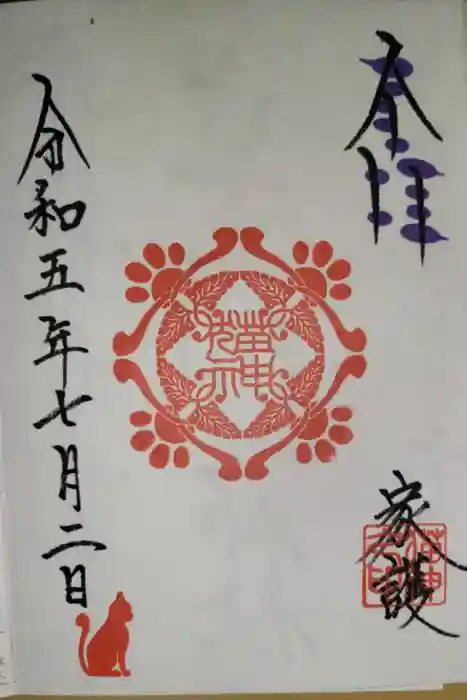 奉拝
家護
令和五年七月二日